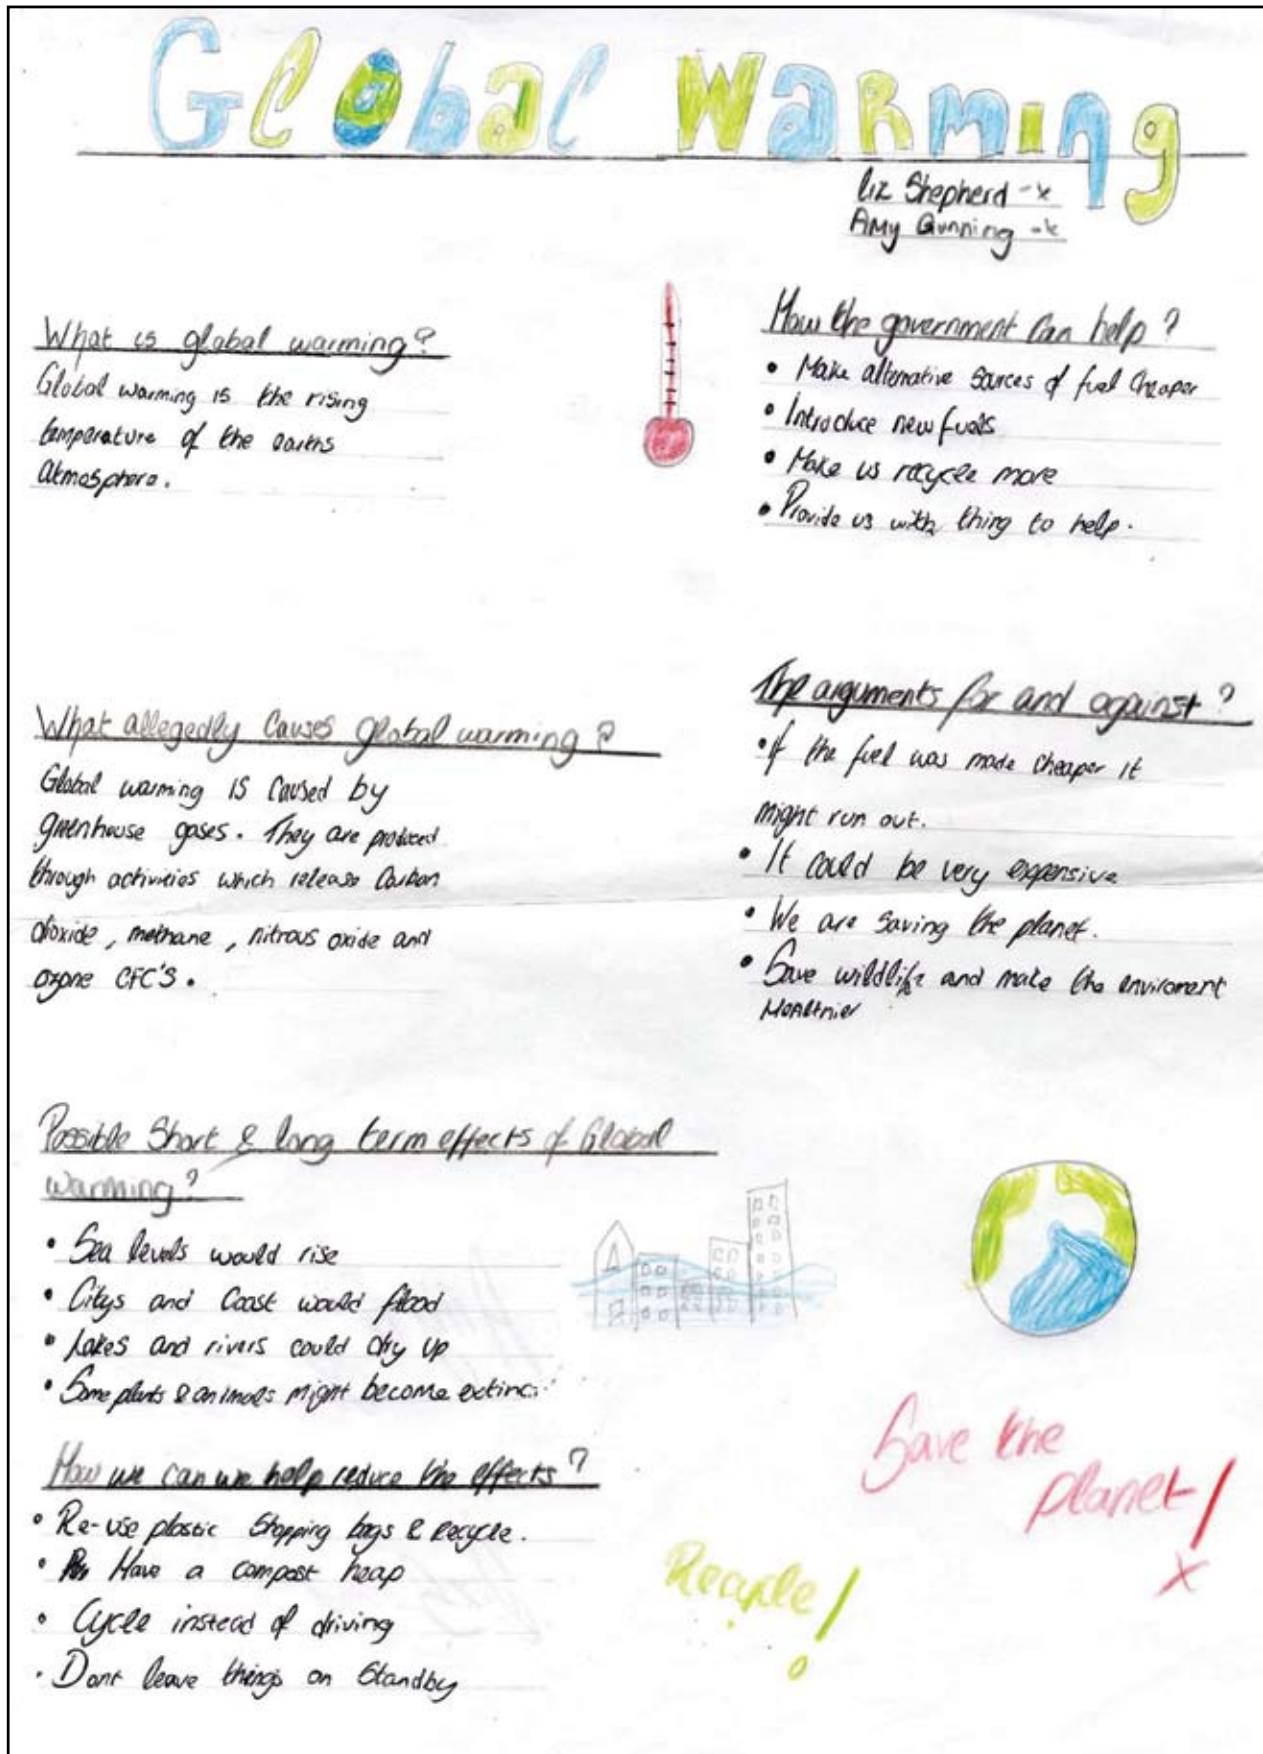 Global Warming
Liz Shepherd -x
Amy Gunning -x
What is global warming?
Global warming is the rising
temperature of the earths
atmosphere.
What allegedly causes global warming?
Global warming is caused by
greenhouse gases. They are produced
through activities which release Carbon
dioxide, methane, nitrous oxide and
ozone CFC'S.
Possible Short & long term effects of Global
warming?
• Sea levels would rise
• Citys and Coast would flood
• Lakes and rivers could dry up
• Some plants & animals might become extinct
How we can we help reduce the effects?
• Re-use plastic Shopping bags & Recycle.
• Have a compost heap
• Cycle instead of driving
• Dont leave things on Standby
How the government can help?
• Make alternative sources of fuel cheaper
• Introduce new fuels
• Make us recycle more
• Provide us with thing to help.
The arguments for and against?
• If the fuel was made cheaper it
might run out.
• It could be very expensive
• We are saving the planet.
• Save wildlife and make the enviroment
Healthier
Save the
planet!
x
Recycle!